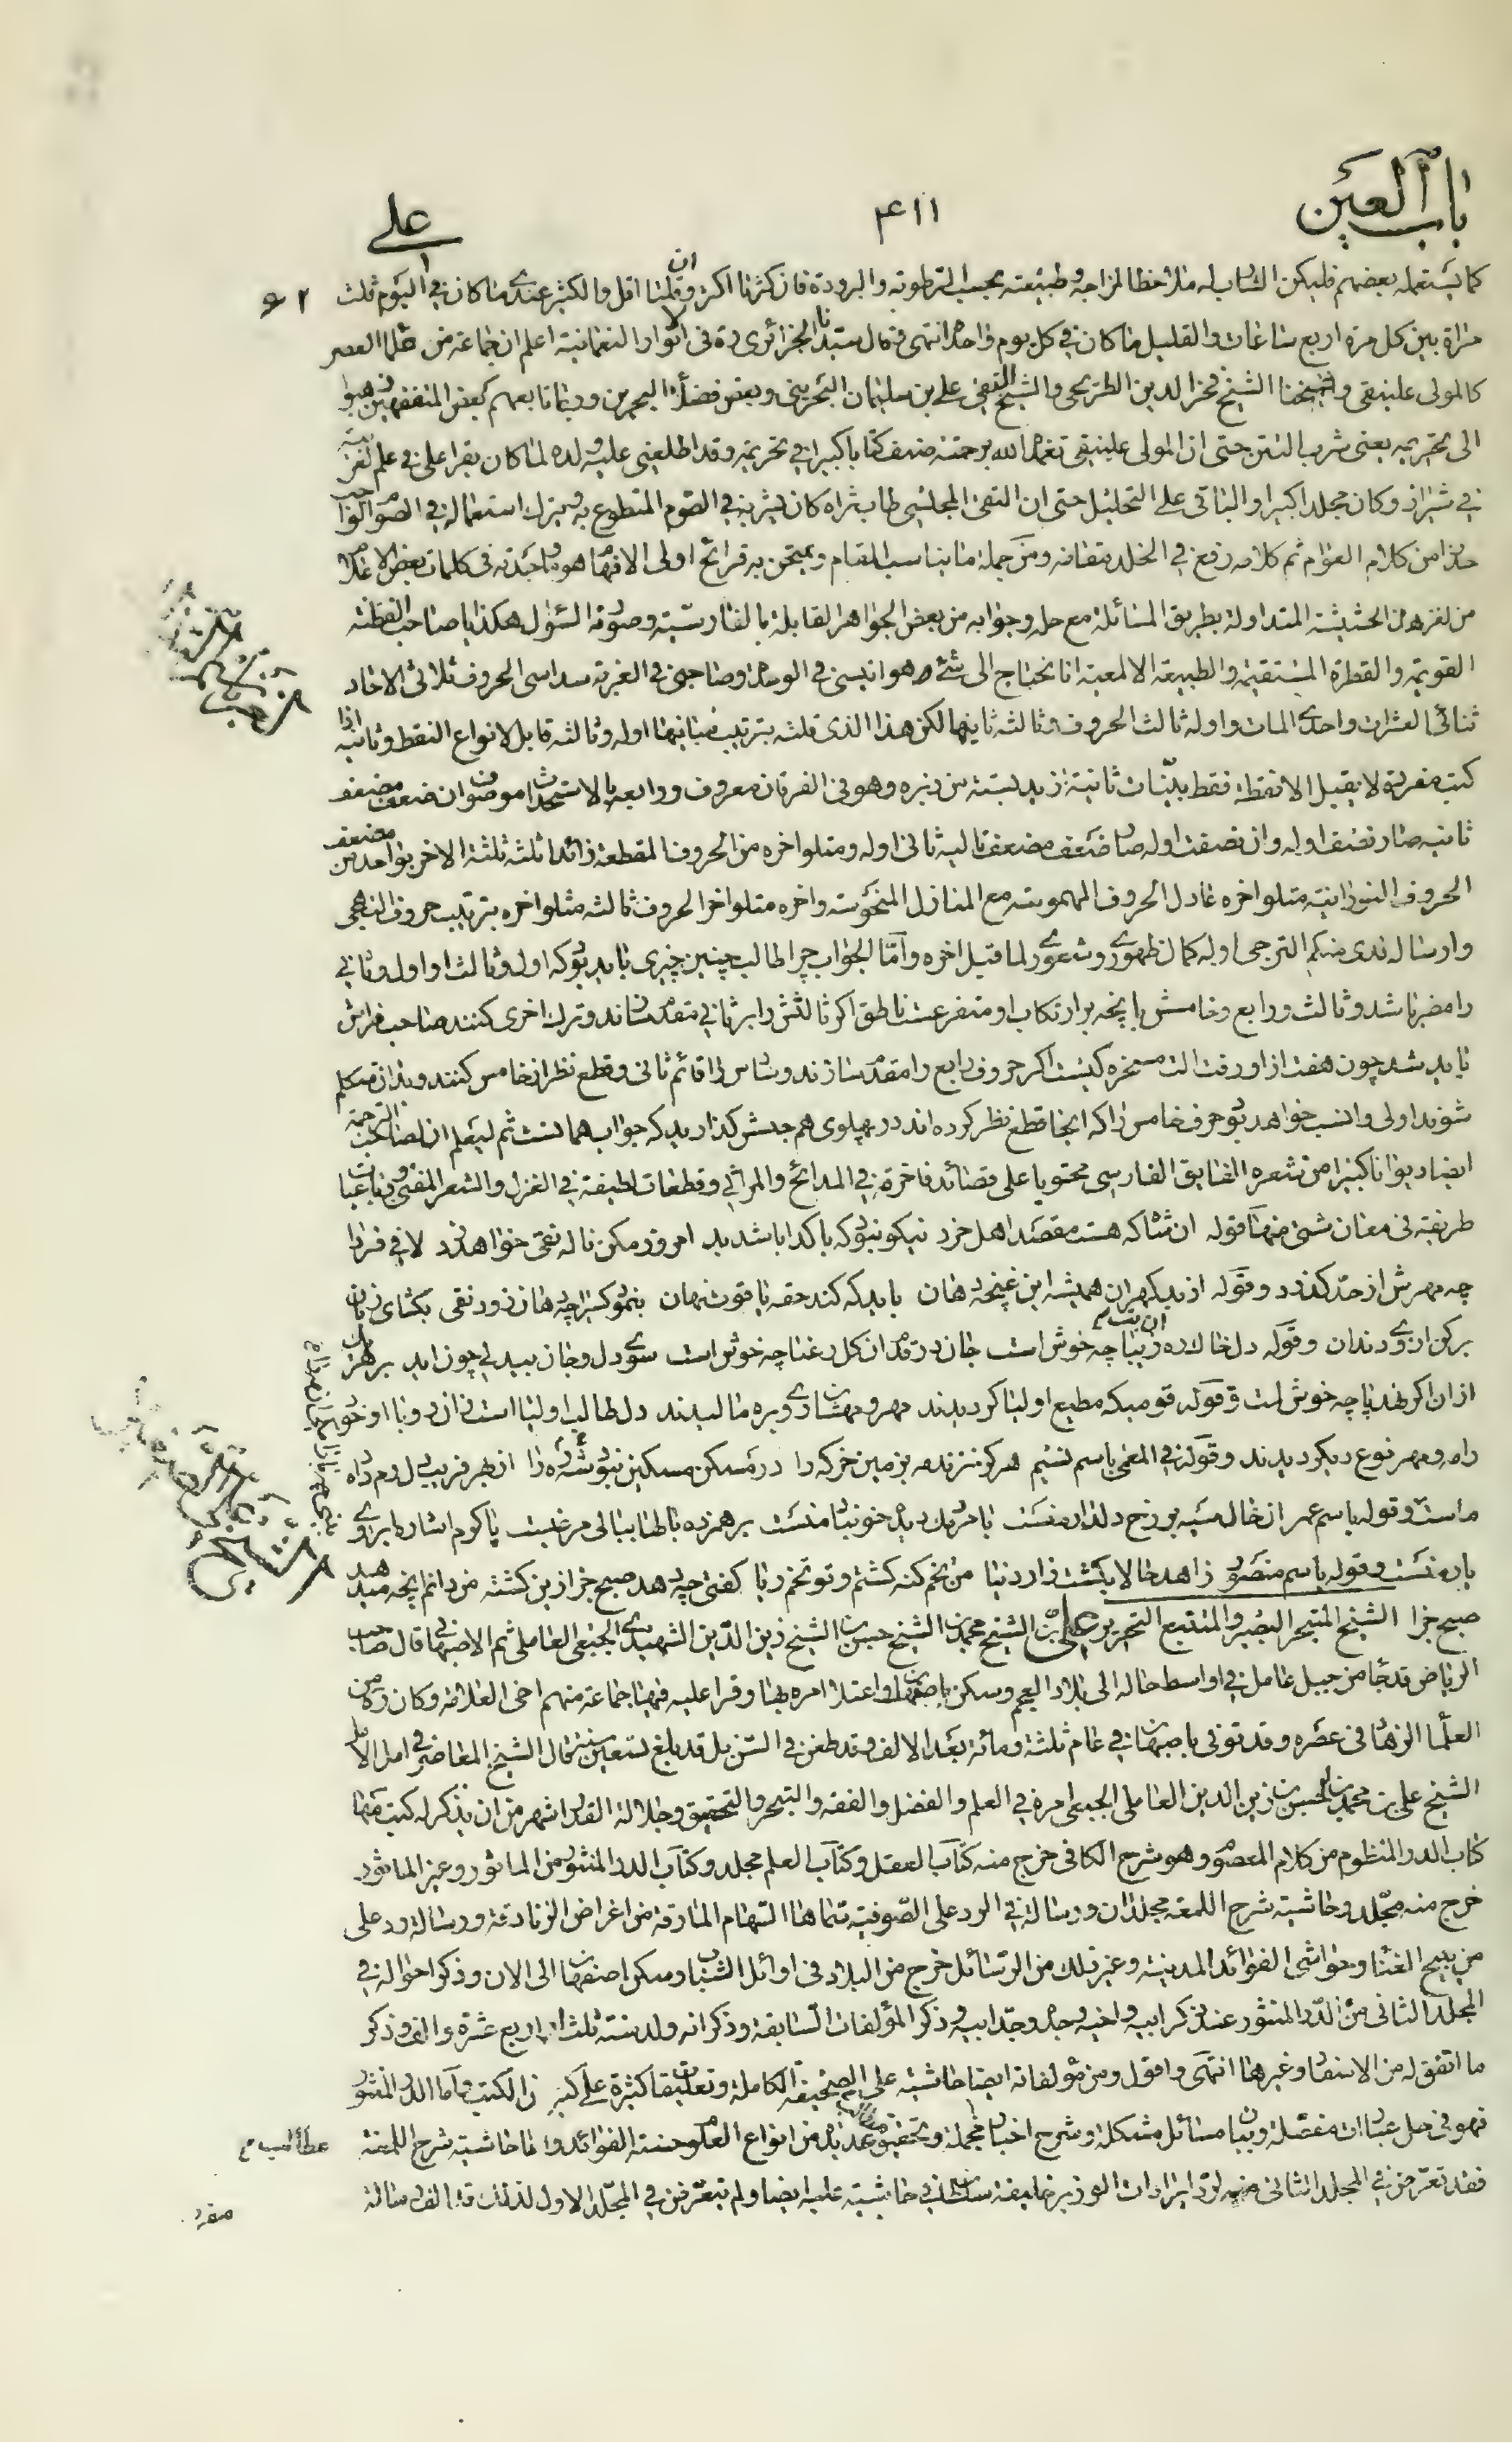 باب العين
٤١١
علي
كما يستعمله بعضهم فليكن الشارب له ملاحظا لمزاجه وطبيعته بحسب الرطوبة والبرودة فان كثرنا اكثر وان قللنا اقل والكثير عندي ما كان في اليوم ثلث
مرات بين كل مرة اربع ساعات والقليل ما كان في كل يوم واحدا انتهى وقال سيدنا الجزائري ره في الانوار النعمانية اعلم ان جماعة من علماء العصر
كالمولى علينقي وشيخنا الشيخ فخر الدين الطريحي والشيخ التقي علي بن سليمان البحريني وبعض فضلاء البحرين وربما تابعهم بعض المتفقهين ذهبوا
الى تحريمه يعني شرب التتن حتى ان المولى علينقي تغمده الله برحمته صنف كتابا كبيرا في تحريمه وقد اطلعني عليه ولده لما كان يقرا علي في علم العربية
في شيراز وكان مجلدا كبيرا والباقي على التحليل حتى ان التقي المجلسي طاب ثراه كان يشربه في الصوم المتطوع به ويترك استعماله في الصوم الواجب
حذرا من كلام العوام ثم كلامه رفع في الخلد مقامه ومن جملة ما يناسب المقام ويمتحن به قرائح اولى الافهام هو ما وجدته في كلمات بعض الاعلام
من لغز هذه الحشيشة المتداولة بطريق المسائلة مع حله وجوابه من بعض الجواهر القابلة بالفارسية وصورة السؤال هكذا يا صاحب الفطنة
القويمة والفطرة المستقيمة والطبيعة الالمعية انا نحتاج الى شئ هو انيسي في الوحدة وصاحبي في الغربة سداسي الحروف ثلاثي الاحاد
ثنائي العشرات واحدي المات واوله ثالث الحروف وثالثه ثانيها لكن هذا الذي قلته بترتيب مبانيها اوله وثالثه قابل لانواع النقط وثانيه اذا
كتب مفردة لا يقبل الا نقطة فقط بينات ثانية ازيد بستة من زبره وهو في الفرقان معروف ورابعه بالاستحداث موصوف وان ضعف مضعف
ثانيه صار نصف اوله وان نصفت اوله صار ضعف مضعف ثانيه ثاني اوله ومتلو اخره من الحروف المقطعة زائدا ثلثه ثلثة الاخر بواحد من مضعف
الحروف النورانية متلو اخره عادل الحروف المهموسة مع المنازل المنحوسة واخره متلو اخر الحروف ثالثه متلو اخره بترتيب حروف التهجي
وارساله لدى منكم الترجى اوله كمال ظهوري وشعوري لما قبل اخره واما الجواب چرا طالب چنين چيزى بايد بود كه اول وثالث او اول وثاني
را مضر باشد وثالث ورابع وخامس بانچه برارتكاب او متفرعست ناطق اگر ثالثش را بر ثاني مقدم سازند وترك اخرى كنند صاحب فراش
بايد شد چون هفت از او رفت الت مسخره كيست اگر حروف رابع را مقدم سازند وسادس را قائم ثاني وقطع نظر از خامس كنند وبدان متكلم
شوند اولى وانسب خواهد بود حرف خامس را كه اينجا قطع نظر كرده اند در پهلوى هم جنسش گذاريد كه جواب همانست ثم ليعلم ان لصاحب الترجمة
ايضا ديوانا كبيرا من شعره الفايق الفارسي محتويا على قصائد فاخرة في المدائح والمراثي وقطعات لطيفة في الغزل والشعر المقفى ورباعيات
طريفة في معان شتى منها قوله ان شاه كه هست مقصد اهل خرد نيكو نبود كه با گدايا شد بد امروز مكن ناله نقى خواهد برد لافى فردا
چه مهرش از حد گذرد وقوله از ديگران هميشه اين غنچه دهان بايد كه كند حقه ياقوت نهان بنمود كسرا چه دهان زود نقى بگشاى زبان
بركن از وى دندان وقوله دل خال لاده زيبا چه خوش است جان در قدم ان گل رعنا چه خوش است سوى دل وجان بيدلى چون ايد بر هر يك
از ان اگر نهد پا چه خوش است وقوله قومي كه مطيع اوليا گرديدند مهر ومه شادى وبره ماليدند دل طالب اوليا است زان رو با او خود
راه ومهر نوع ديگر ديدند وقوله في المعمى باسم نسيم هرگز نزند مه بزمين خرگه را در مسكن مسكين نبود شه ره را از بهر فريب دل ودم داه
ماست وقوله باسم عمر از خال سيه برزخ دلدار منست بر همزده باطنا ببالى مرغيست پا كوم اشاره ابروى
يار منست وقوله باسم منصور زاهد حالا بكشت زار دنيا من تخم گنه كشتم و تو تخم ريا گفتى چه دهد صبح جزا زين كشته من دانم انچه ميدهد
صبح جزا الشيخ المتبحر البصير والمتتبع النحرير علي بن الشيخ محمد بن الشيخ حسن بن الشيخ زين الدين الشهيد الجبعي العاملي ثم الاصبهاني قال صاحب
الرياض قد جا من جبل عامل في اواسط حاله الى بلاد العجم وسكن باصبهان واعتلا امره بها وقرا عليه فيها جماعة منهم اخى العلامة وكان ره من
العلماء الزهاد في عصره وقد توفي باصبهان في عام ثلثة ومائة بعد الالف وقد طعن في السن بل قد بلغ تسعين سنة وقال الشيخ المعاصر في امل الامل
الشيخ علي بن محمد بن الحسن بن زين الدين العاملي الجبعي امره في العلم والفضل والفقه والتبحر والتحقيق وجلالة القدر اشهر من ان يذكر له كتب منها
كتاب الدر المنظوم من كلام المعصوم وهو شرح الكافي خرج منه كتاب العقل وكتاب العلم مجلد وكتاب الدر المنثور من الماثور وغير الماثور
خرج منه مجلد وحاشية شرح اللمعة مجلدان ورسالة في الرد على الصوفية سماها السهام المارقة من اغراض الزنادقة ورسالة رد على
من يبيح الغنا وحواشي الفوائد المدينة وغير ذلك من الرسائل خرج من البلاد في اوائل الشباب وسكن اصفهان الى الان وذكر احواله في
المجلد الثاني من الدر المنثور عند ذكر ابيه واخيه وجده وجد ابيه وذكر المؤلفات السابقة وذكر انه ولد سنة ثلث او اربع عشرة والف وذكر
ما اتفق له من الاسفار وغيرها انتهى واقول ومن مؤلفاته ايضا حاشية على الصحيفة الكاملة وتعليقات كثيرة على كثير من الكتب واما الدر المنثور
فهو في حل عبارات مفصلة وبيان مسائل مشكلة وشرح اخبار مجملة وتحقيق مطالب عديدة من انواع العلوم حسنة الفوائد واما حاشية شرح اللمعة
فقد تعرض في المجلد الثاني منه لرد ايرادات الوزير خليفة سلطان في حاشية عليه ايضا ولم يتعرض في المجلد الاول لذلك وقد الف رسالة
مفرد